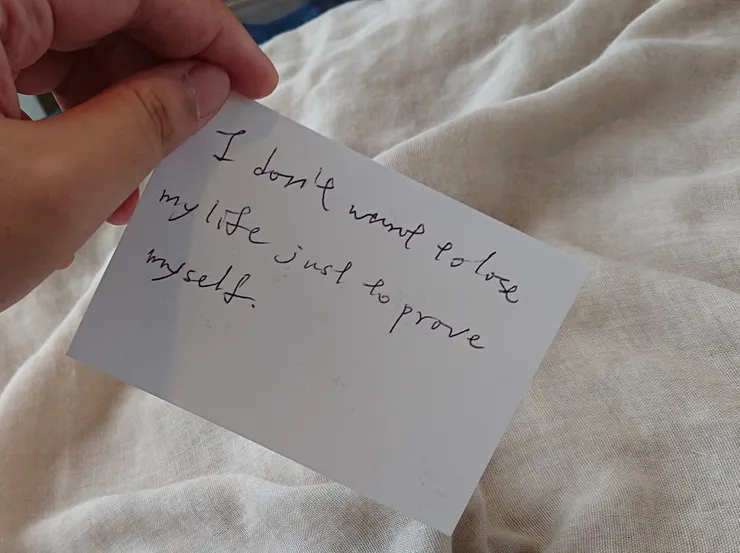 I don't want to lose
my life just to prove
myself.